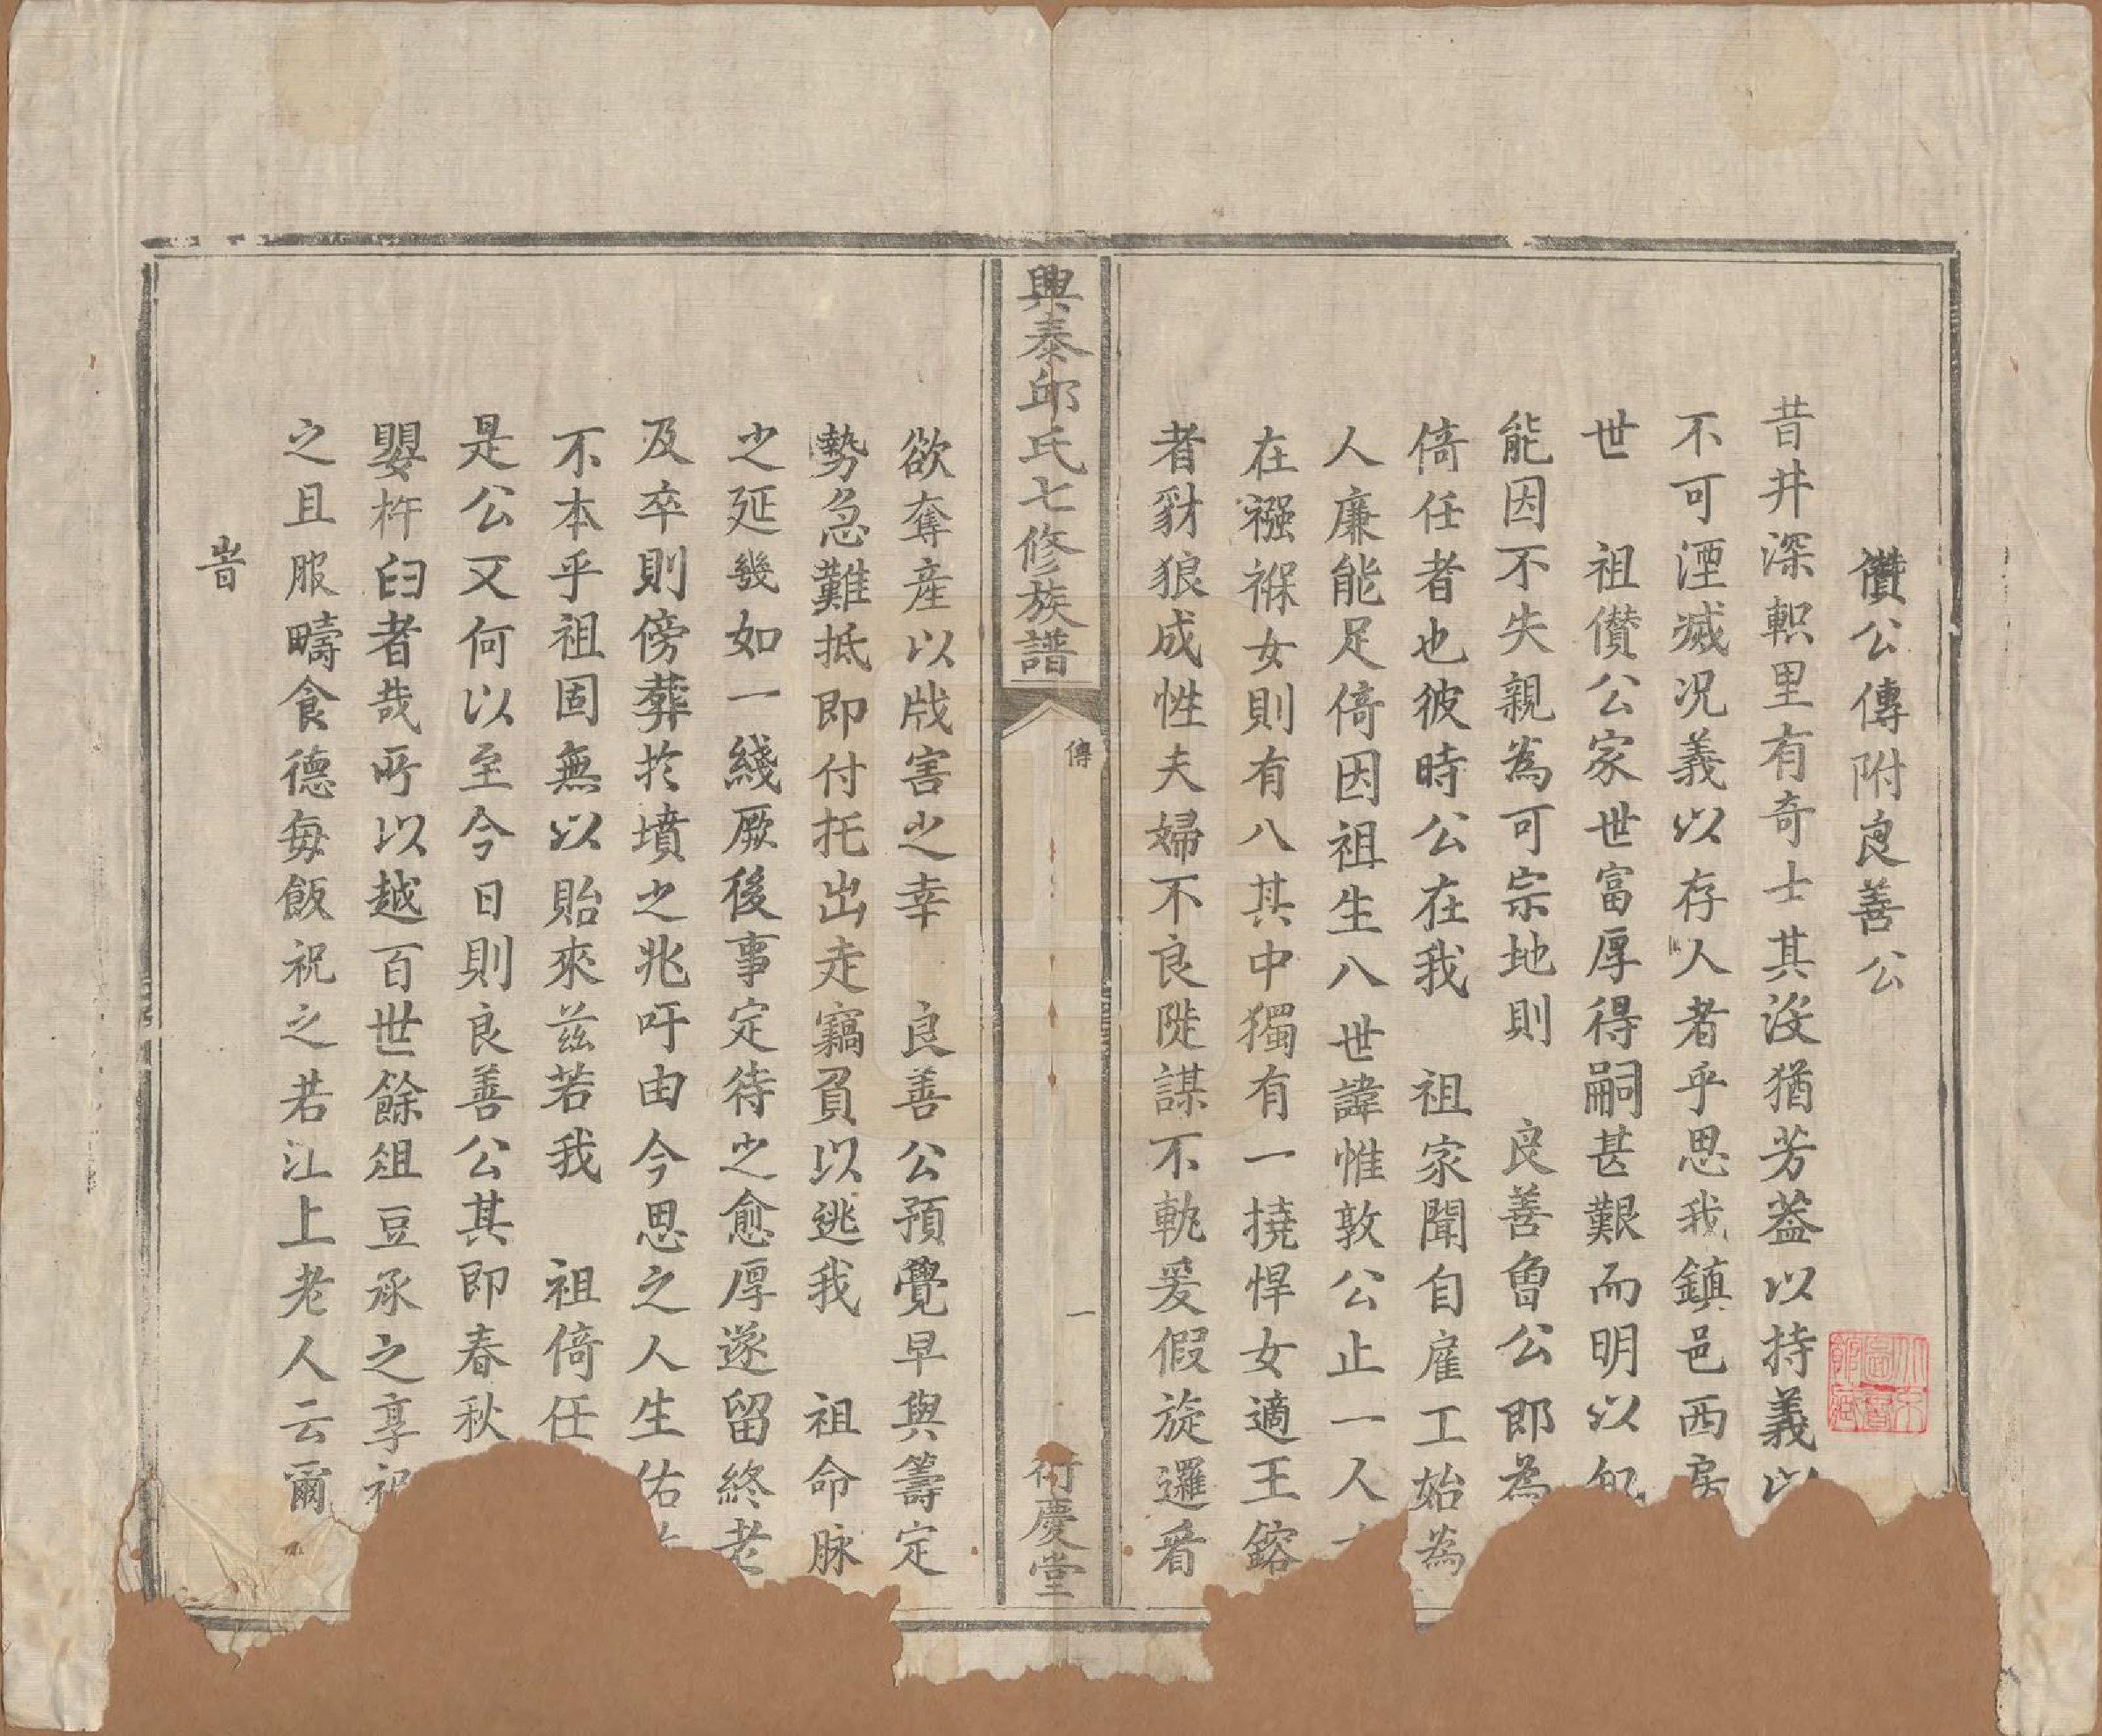 儹公傳附良善公
昔井深軹里有奇士其沒猶芳蓋以持義以
不可湮滅况義以存人者乎思我鎮邑西房
世 祖儹公家世富厚得嗣甚艱而明以
能因不失親為可宗地則 良善魯公即為
倚任者也彼時公在我 祖家聞自雇工始為
人廉能足倚因祖生八世諱惟敦公止一人
在襁褓女則有八其中獨有一撓悍女適王鎔
者豺狼成性夫婦不良陡謀不軌爰假旋邏看
興泰邱氏七修族譜
傳
一
衍慶堂
欲奪產以戕害之幸 良善公預覺早與籌定
勢急難抵即付托出走竊負以逃我 祖命脉
之延幾如一綫厥後事定待之愈厚遂留終老
及卒則傍葬於墳之兆吁由今思之人生佑
不本乎祖固無以貽來茲若我 祖倚任
是公又何以至今日則良善公其即春秋
嬰杵臼者哉所以越百世餘俎豆承之享祀
之且服疇食德每飯祝之若江上老人云爾
旹